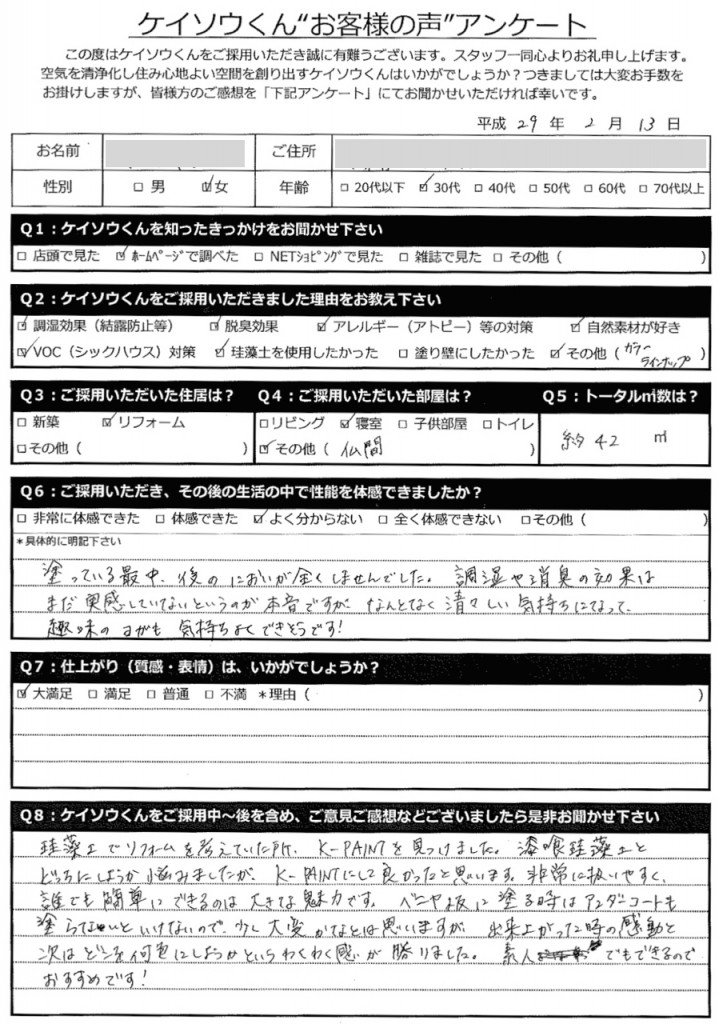 ケイソウくん"お客様の声"アンケート
この度はケイソウくんをご採用いただき誠に有難うございます。スタッフ一同心よりお礼申し上げます。
空気を清浄化し住み心地よい空間を創り出すケイソウくんはいかがでしょうか？つきましては大変お手数を
お掛けしますが、皆様方のご感想を「下記アンケート」にてお聞かせいただければ幸いです。
平成 29 年 2 月 13 日
お名前 ご住所
性別 □ 男 ☑女 年齢 □ 20代以下 ☑30代 □ 40代 □ 50代 □ 60代 □ 70代以上
Q1：ケイソウくんを知ったきっかけをお聞かせ下さい
□ 店頭で見た ☑ ﾎｰﾑﾍﾟｰｼﾞで調べた □ NETｼｮﾋﾟﾝｸﾞで見た □ 雑誌で見た □ その他（ ）
Q2：ケイソウくんをご採用いただきました理由をお教え下さい
☑ 調湿効果（結露防止等） ☑ 脱臭効果 ☑ アレルギー（アトピー）等の対策 ☑ 自然素材が好き
☑VOC（シックハウス）対策 ☑ 珪藻土を使用したかった □ 塗り壁にしたかった ☑ その他（カラーラインナップ）
Q3：ご採用いただいた住居は？ Q4：ご採用いただいた部屋は？ Q5：トータル㎡数は？
□ 新築 ☑リフォーム □リビング ☑寝室 □ 子供部屋 □トイレ 約 42 ㎡
□その他（ ） ☑その他（ 仏間 ）
Q6：ご採用いただき、その後の生活の中で性能を体感できましたか？
□ 非常に体感できた □ 体感できた ☑ よく分からない □ 全く体感できない □その他（ ）
＊具体的に明記下さい
塗っている最中、後のにおいが全くしませんでした。調湿や消臭の効果は
まだ実感していないというのが本音ですが、なんとなく清々しい気持ちになって、
趣味のヨガも気持ちよくできそうです！
Q7：仕上がり（質感・表情）は、いかがでしょうか？
☑ 大満足 □ 満足 □ 普通 □ 不満 ＊理由（ ）
Q8：ケイソウくんをご採用中～後を含め、ご意見ご感想などございましたら是非お聞かせ下さい
珪藻土でリフォームを考えていた所、K-PAINTを見つけました。漆喰珪藻土と
どっちにしようか悩みましたが、K-PAINTにして良かったと思います。非常に扱いやすく、
誰でも簡単にできるのは大きな魅力です。ベニヤ板に塗る時はアンダーコートも
塗らないといけないので、少し大変かなとは思いますが、出来上がった時の感動と
次はどこを何色にしようかというわくわく感が勝りました。素人でもできるので
おすすめです！